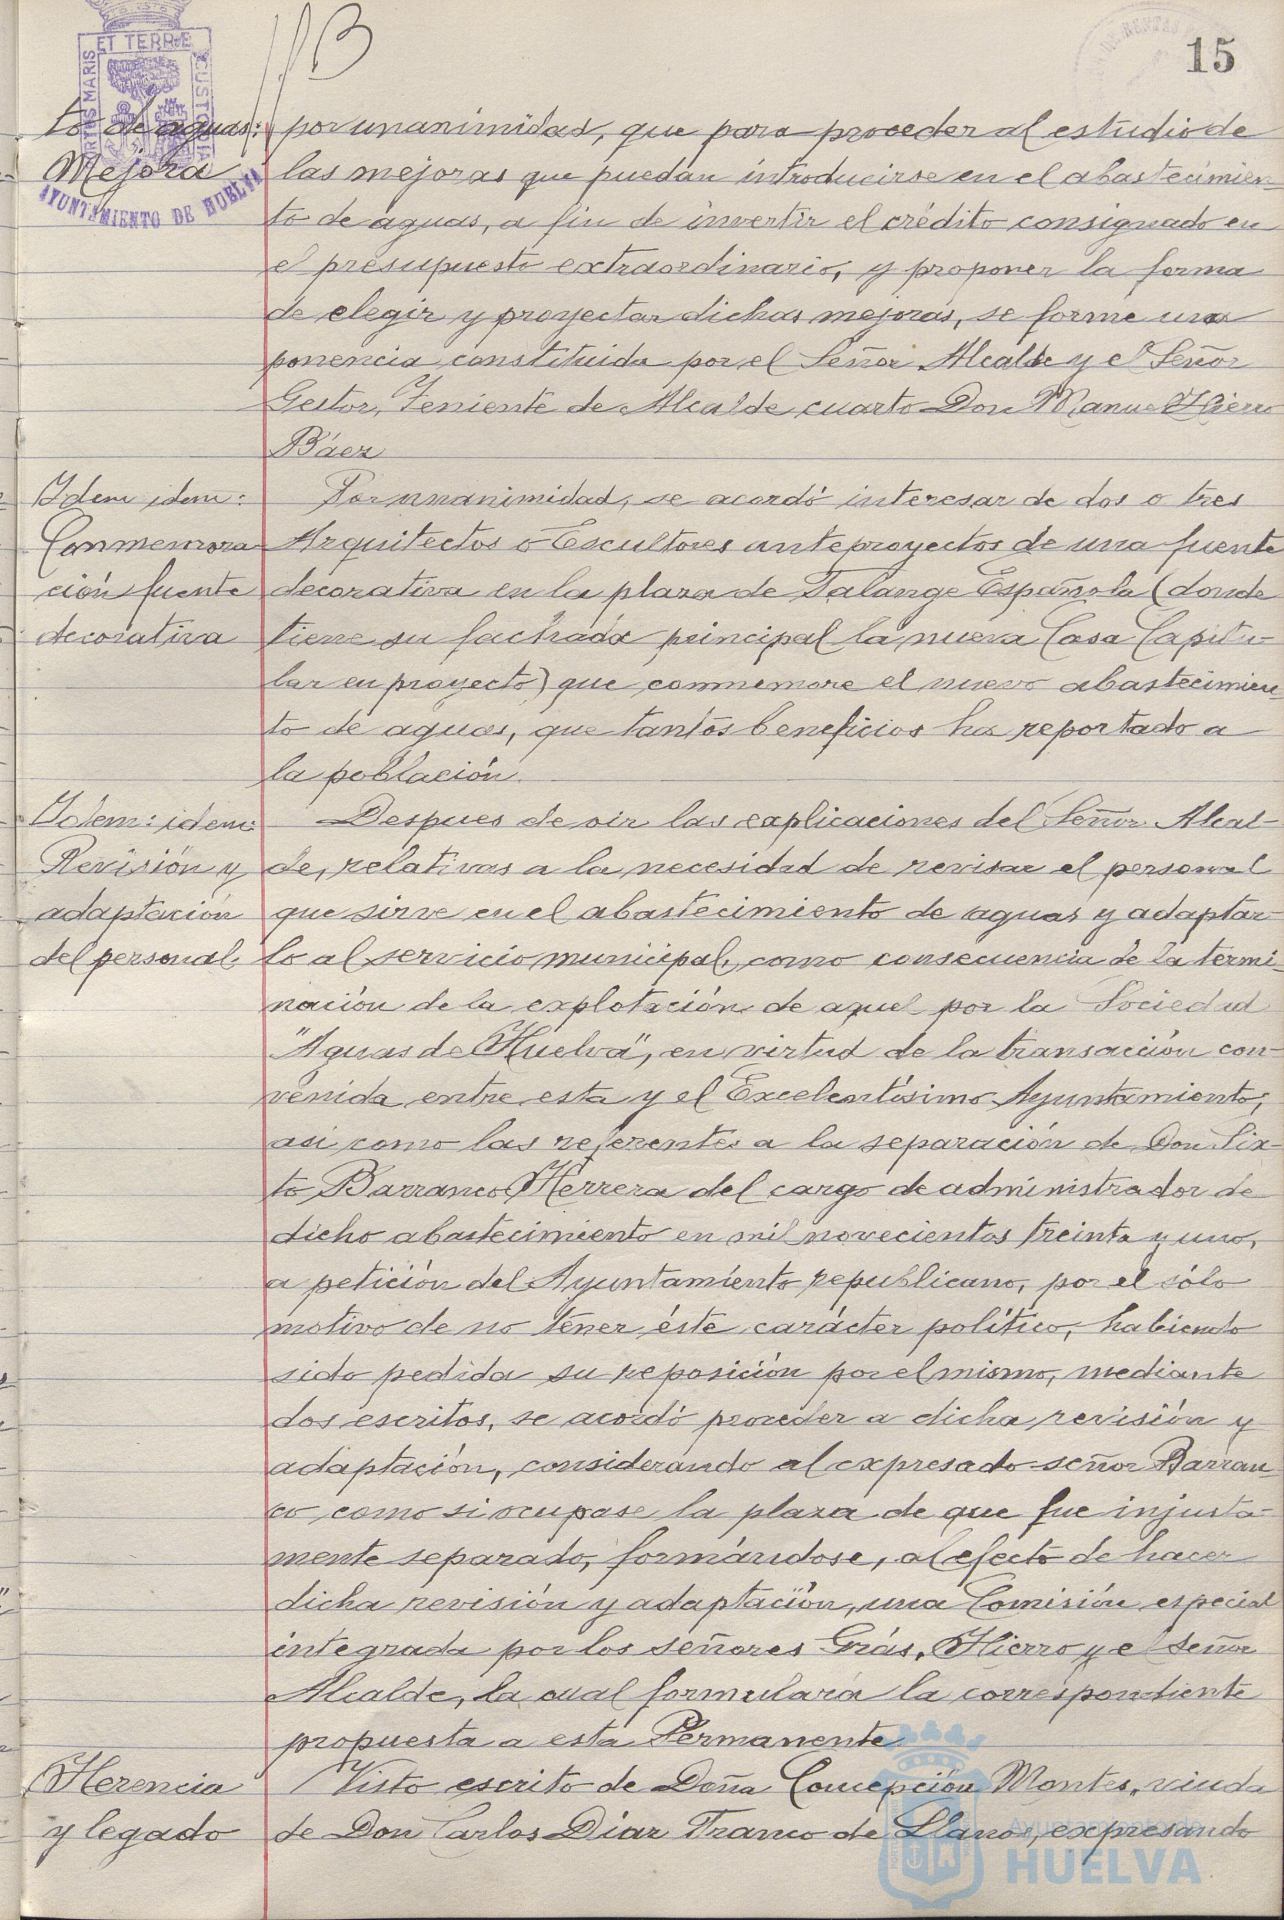 15
to de aguas: por unanimidad, que para proceder al estudio de
Mejora las mejoras que puedan introducirse en el abastecimien-
to de aguas, a fin de invertir el crédito consignado en
el presupuesto extraordinario, y proponer la forma
de elegir y proyectar dichas mejoras, se forme una
ponencia constituida por el Señor Alcalde y el Señor
Gestor, Teniente de Alcalde cuarto Don Manuel Hierro
Báez
Idem idem: Por unanimidad, se acordó interesar de dos o tres
Conmemora Arquitectos o Escultores anteproyectos de una fuente
ción fuente decorativa en la plaza de Falange Española (donde
decorativa tiene su fachada principal la nueva Casa Capitu-
lar en proyecto) que conmemore el nuevo abastecimien-
to de aguas, que tantos beneficios ha reportado a
la población.
Idem: idem: Despues de oir las explicaciones del Señor Alcal-
Revisión y de, relativas a la necesidad de revisar el personal
adaptación que sirve en el abastecimiento de aguas y adaptar-
del personal lo al servicio municipal, como consecuencia de la termi-
nación de la explotación de aquel por la Sociedad
"Aguas de Huelva", en virtud de la transacción con-
venida entre esta y el Excelentísimo Ayuntamiento;
asi como las referentes a la separación de Don Six-
to Barranco Herrera del cargo de administrador de
dicho abastecimiento en mil novecientos treinta y uno,
a petición del Ayuntamiento republicano, por el sólo
motivo de no tener éste carácter político, habiendo
sido pedida su reposición por el mismo, mediante
dos escritos, se acordó proceder a dicha revisión y
adaptación, considerando al expresado señor Barran-
co como si ocupase la plaza de que fue injusta-
mente separado, formándose, al efecto de hacer
dicha revisión y adaptación, una Comisión especial
integrada por los señores Grás, Hierro y el señor
Alcalde, la cual formulará la correspondiente
propuesta a esta Permanente.
Herencia Visto escrito de Doña Concepción Montes, viuda
y legado de Don Carlos Díaz Franco de Llanos, expresando
ET TERRE
PORTUS MARIS
CUSTODIA
AYUNTAMIENTO DE HUELVA
Ayuntamiento de
HUELVA